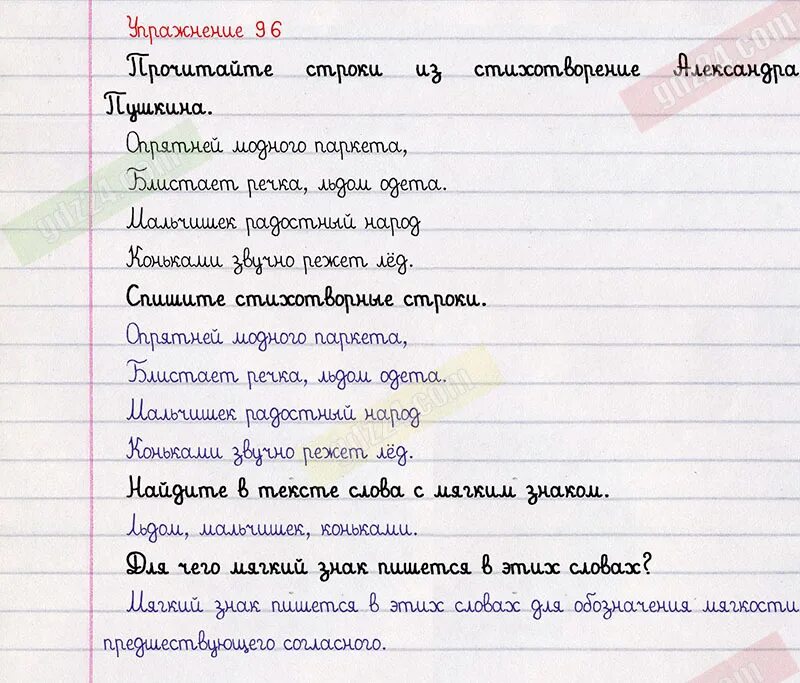 Упражнение 96
Прочитайте строки из стихотворение Александра
Пушкина.
Опрятней модного паркета,
Блистает речка, льдом одета.
Мальчишек радостный народ
Коньками звучно режет лёд.
Спишите стихотворные строки.
Опрятней модного паркета,
Блистает речка, льдом одета.
Мальчишек радостный народ
Коньками звучно режет лёд.
Найдите в тексте слова с мягким знаком.
Льдом, мальчишек, коньками.
Для чего мягкий знак пишется в этих словах?
Мягкий знак пишется в этих словах для обозначения мягкости
предшествующего согласного.
gdz24.com
gdz24.com
gdz24.com
gdz24.com